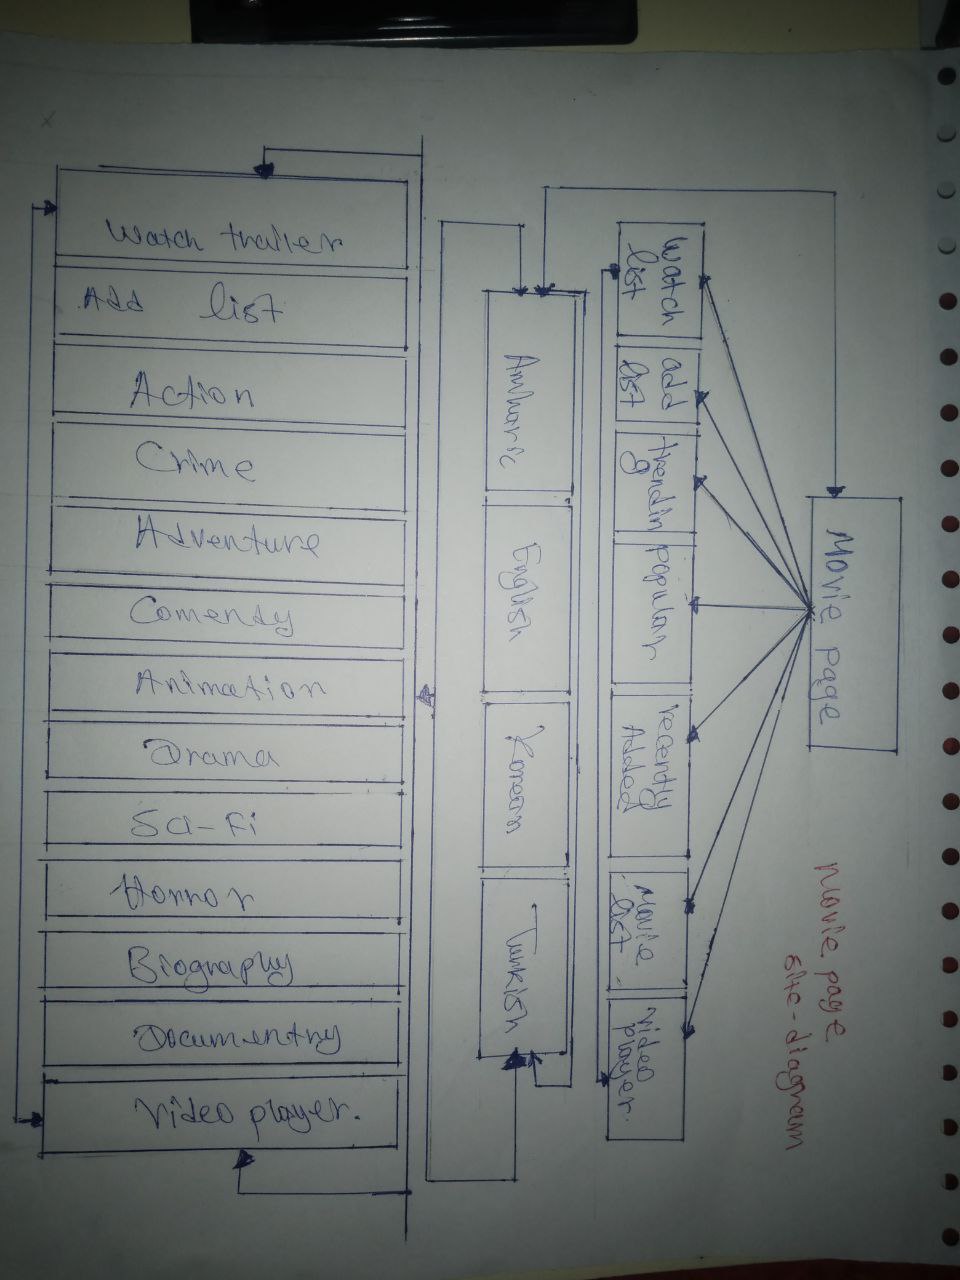 Movie page
site-diagram
Movie page
watch
list
add
list
trendin
g
popular
recently
Added
Movie
list
video
player
Amharic
English
Korean
Turkish
Watch trailer
Add list
Action
Crime
Adventure
Comendy
Animation
Drama
Sci-Fi
Horror
Biography
Documentry
Video player.